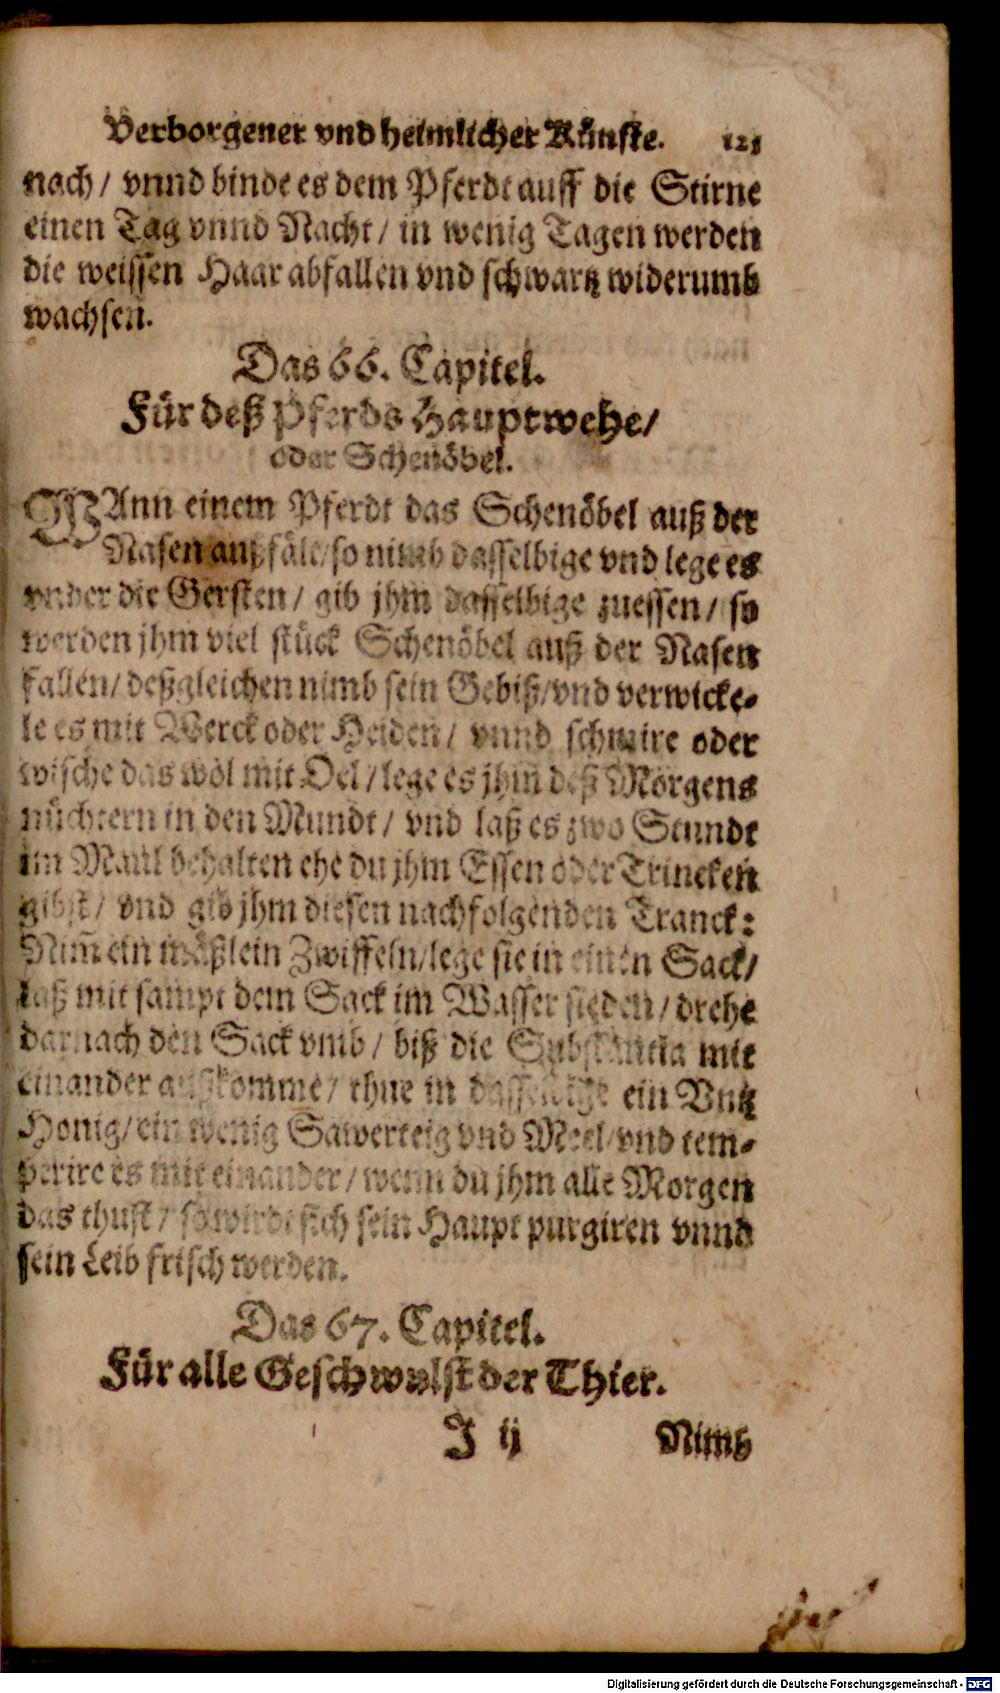 Verborgener vnd heimlicher Künste. 121
nach / vnnd binde es dem Pferdt auff die Stirne
einen Tag vnnd Nacht / in wenig Tagen werden
die weissen Haar abfallen vnd schwartz widerumb
wachsen.
Das 66. Capitel.
Für deß Pferds Hauptwehe /
oder Schenöbel.
WAnn einem Pferdt das Schenöbel auß der
Nasen außfält / so nimb dasselbige vnd lege es
vnder die Gersten / gib jhm dasselbige zuessen / so
werden jhm viel stück Schenöbel auß der Nasen
fallen / deßgleichen nimb sein Gebiß / vnd verwicke-
le es mit Werck oder Heiden / vnnd schmire oder
wische das wol mit Oel / lege es jhm deß Morgens
nüchtern in den Mundt / vnd laß es zwo Stundt
im Maul behalten ehe du jhm Essen oder Trincken
gibst / vnd gib jhm diesen nachfolgenden Tranck:
Nim̃ ein mäßlein Zwiffeln / lege sie in einen Sack /
laß mit sampt dem Sack im Wasser sieden / drehe
darnach den Sack vmb / biß die Substantia mit
einander außkomme / thue in dasselbige ein Vntz
Honig / ein wenig Sawerteig vnd Meel / vnd tem-
perire es mit einander / wenn du jhm alle Morgen
das thust / so wirdt sich sein Haupt purgiren vnnd
sein Leib frisch werden.
Das 67. Capitel.
Für alle Geschwulst der Thier.
J ij Nimb
Digitalisierung gefördert durch die Deutsche Forschungsgemeinschaft - DFG